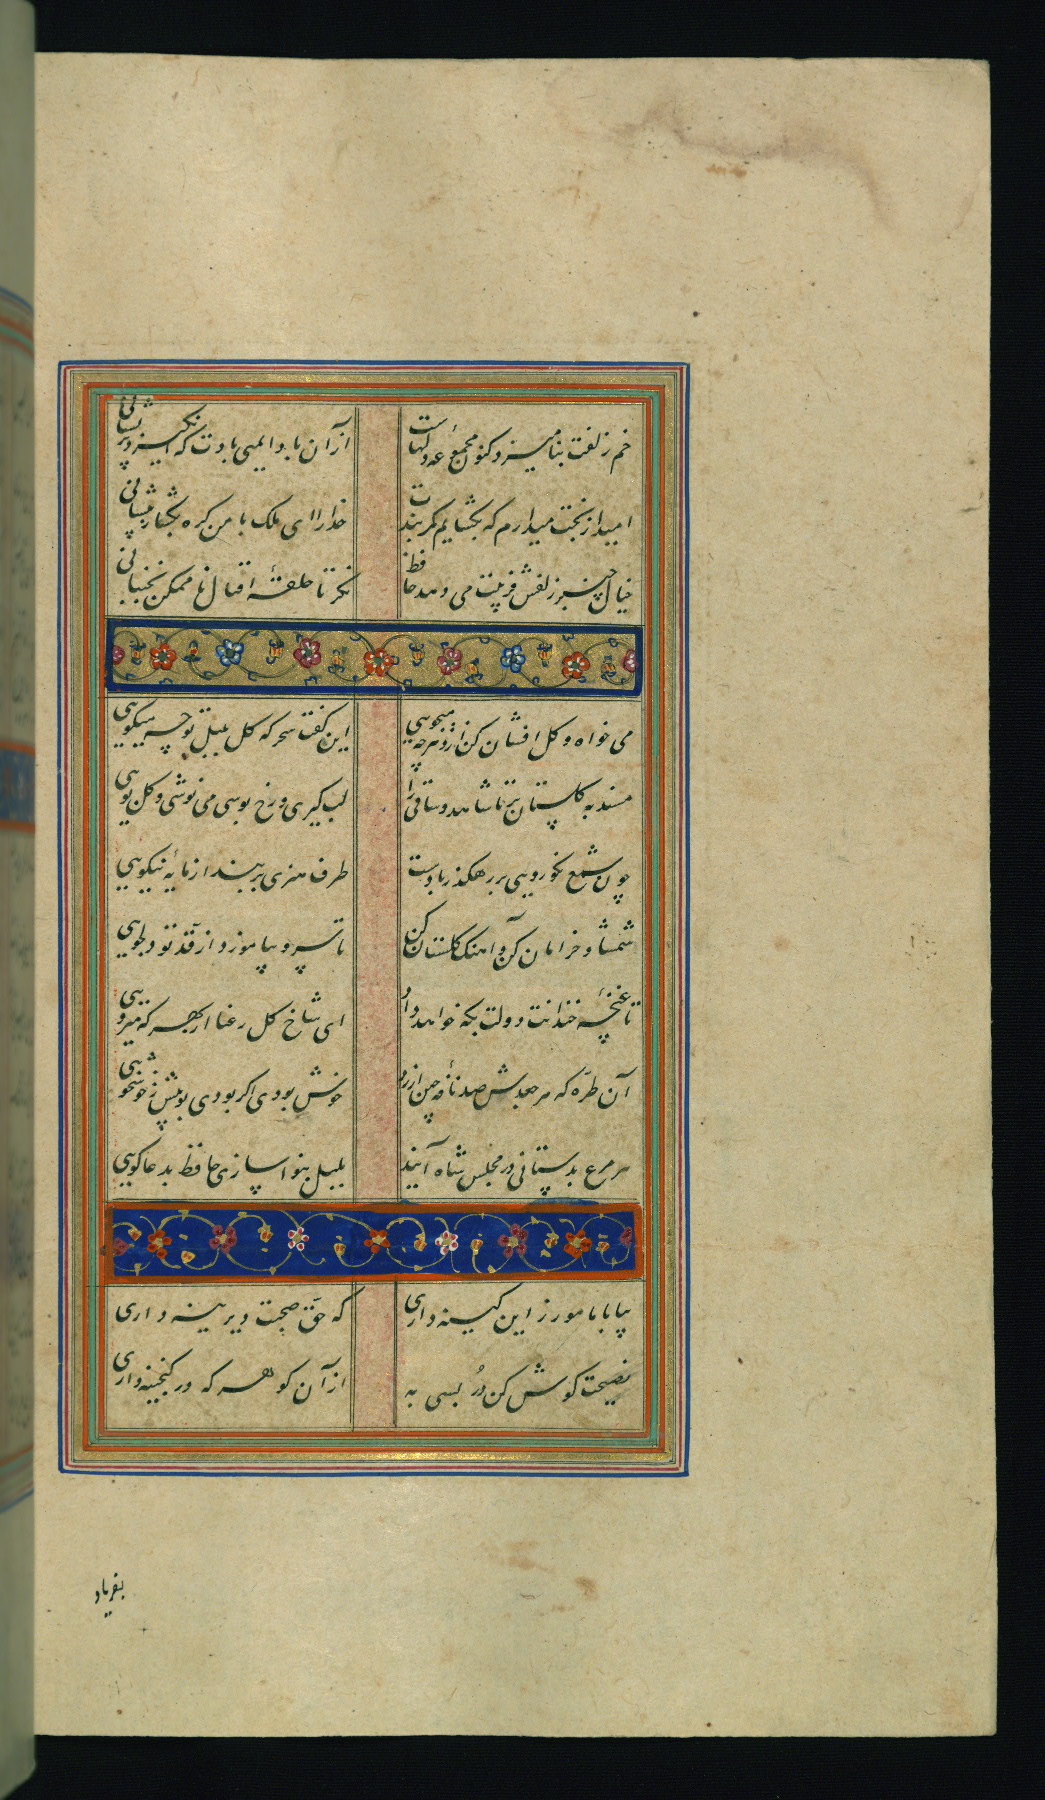 خم زلفت بنامیزد کنون مجموعهٔ دلهاست از آن باد ایمنی بادت که انکیزد پریشانی
امید از بخت میدارم که بکشایم کمربندت خدارا ای ملک با من کره بکشا ز پیشانی
خیال چنبر زلفش فریبت می دهد حافظ نکر تا حلقهٔ اقبال ناممکن نجنبانی
می خواه و کل افشان کن از دهر چه میجویی این کفت سحرکه کل بلبل تو چه میکویی
مسند به کلستان بر تا شاهد و ساقی را لب کیری و رخ بوسی می نوشی و کل بویی
چون شمع نکورویی بر رهکذر بادست طرف هنری بربند از مایهٔ نیکویی
شمشاد خرامان کن و آهنک کلستان کن تا سرو بیاموزد از قد تو دلجویی
تا غنچه خندانت دولت بکه خواهد داد ای شاخ کل رعنا از بهر که میرویی
آن طرّه که هر جعدش صد نافهٔ چین ارزد خوش بودی اکر بودی بوییش ز خوشخویی
هر مرغ بدستانی در مجلس شاه آیند بلبل بنواسازی حافظ بدعاکویی
بیا با ما مورز این کینه داری که حقّ صحبت دیرینه داری
نصیحت کوش کن دُر بسی به از آن کوهر که در کنجینه داری
بفریاد